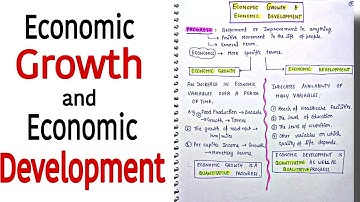 Economic
Growth
and
Economic
Development
ECONOMIC GROWTH &
ECONOMIC DEVELOPMENT
PROGRESS : Betterment or Improvement in anything.
Positive Movement in the life of people.
General term.
ECONOMIC → More specific terms.
ECONOMIC GROWTH
AN INCREASE IN ECONOMIC
VARIABLES OVER A PERIOD
OF TIME.
eg ① Food Production → Decade
→ Growth → Tonnes
② The growth of road
③ Per Capita Income → Growth
→ Monetary terms
∴ ECONOMIC GROWTH IS A
QUANTITATIVE PROGRESS.
ECONOMIC DEVELOPMENT
INDICATES AVAILABILITY OF
MANY VARIABLES :
① Reach of Healthcare Facilities.
② The Level of Education
③ The Level of Nutrition.
④ Other variables on which
quality of life depends.
ECONOMIC DEVELOPMENT IS
QUANTITATIVE AS WELL AS
QUALITATIVE PROGRESS